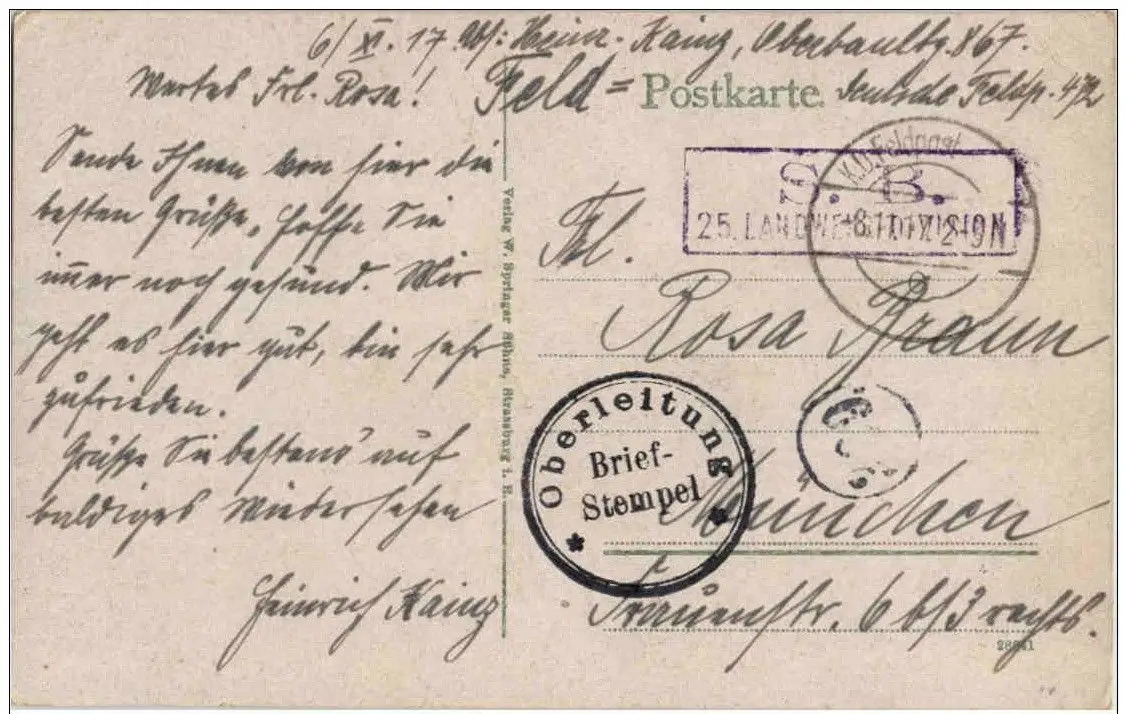 6/XI.17 Abs: Heinr. Kainz, Oberbaultg. 867.
Wertes Frl. Rosa! Feld= Postkarte. Deutsche Feldp. 472
Sende Ihnen von hier die
besten Grüße, hoffe Sie
immer noch gesund. Mir
geht es hier gut, bin sehr
zufrieden.
Grüße Sie bestens auf
baldiges Wiedersehen
Heinrich Kainz
Verlag W. Springer Söhne, Strassburg i. E.
K.D. Feldpost
S. B.
25. LANDWEHRDIVISION
8.11.17. 2-9N
Frl.
Rosa Braun
Oberleitung
Brief-
Stempel
München
Frauenstr. 6 b/3 rechts.